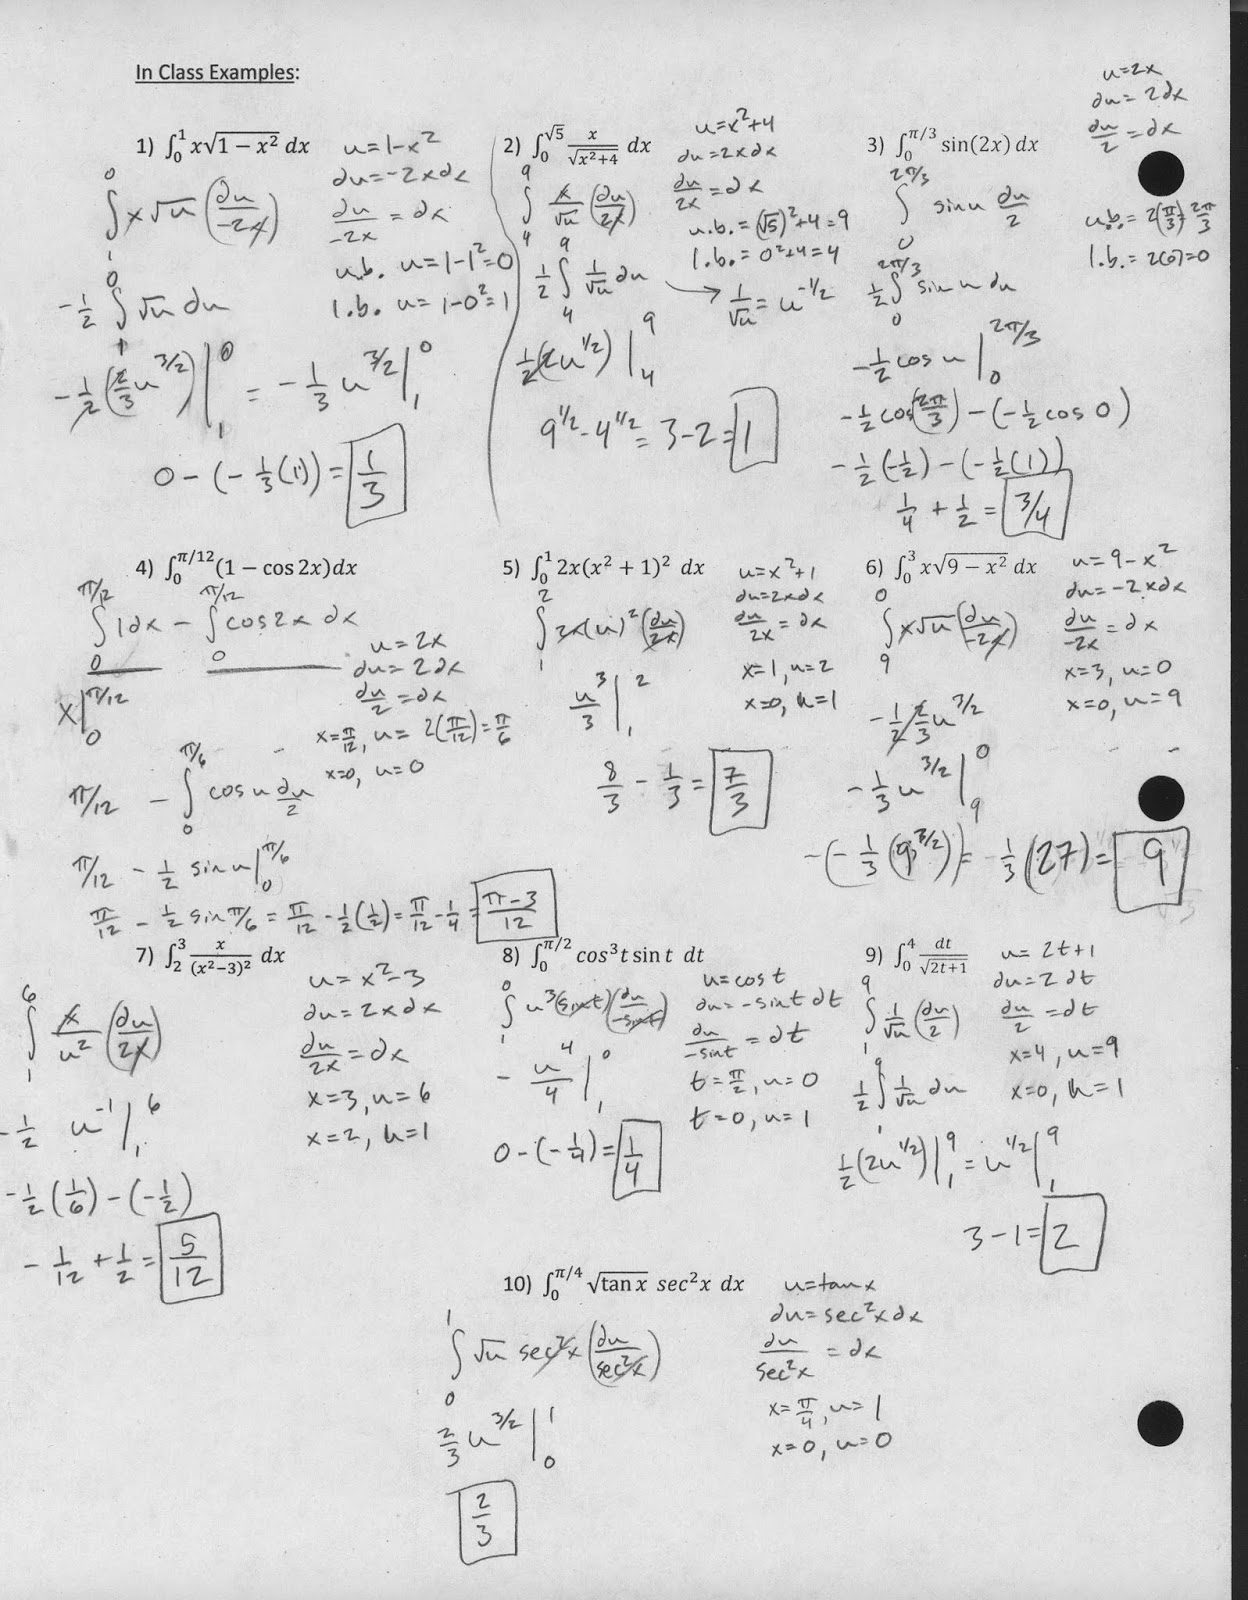 In Class Examples:
1) ∫₀¹ x√(1 − x²) dx
u=1-x²
du=-2xdx
du/-2x = dx
u.b. u=1-1²=0
l.b. u=1-0²=1
∫₁⁰ x√u (du/-2x)
-1/2 ∫₁⁰ √u du
-1/2 (2/3 u^3/2) |₁⁰ = -1/3 u^3/2 |₁⁰
0-(-1/3(1)) = 1/3
2) ∫₀^√5 x/√(x²+4) dx
u=x²+4
du=2xdx
du/2x = dx
u.b.=(√5)²+4=9
l.b.=0²+4=4
∫₄⁹ x/√u (du/2x)
1/2 ∫₄⁹ 1/√u du → 1/√u = u^-1/2
1/2(2u^1/2) |₄⁹
9^1/2-4^1/2 = 3-2 = 1
3) ∫₀^π/3 sin(2x) dx
u=2x
du=2dx
du/2 = dx
u.b.=2(π/3)=2π/3
l.b.=2(0)=0
∫₀^2π/3 sinu du/2
1/2 ∫₀^2π/3 sin u du
-1/2 cos u |₀^2π/3
-1/2 cos(2π/3) - (-1/2 cos 0)
-1/2(-1/2) - (-1/2(1))
1/4 + 1/2 = 3/4
4) ∫₀^π/12 (1 − cos 2x)dx
∫₀^π/12 1dx - ∫₀^π/12 cos2x dx
u=2x
du=2dx
du/2 = dx
x=π/12, u=2(π/12)=π/6
x=0, u=0
x |₀^π/12
π/12 - ∫₀^π/6 cosu du/2
π/12 - 1/2 sin u |₀^π/6
π/12 - 1/2 sin π/6 = π/12 - 1/2(1/2) = π/12 - 1/4 = π-3/12
5) ∫₀¹ 2x(x² + 1)² dx
u=x²+1
du=2xdx
du/2x = dx
x=1, u=2
x=0, u=1
∫₁² 2x(u)² (du/2x)
u³/3 |₁²
8/3 - 1/3 = 7/3
6) ∫₀³ x√(9 − x²) dx
u=9-x²
du=-2xdx
du/-2x = dx
x=3, u=0
x=0, u=9
∫₉⁰ x√u (du/-2x)
-1/2 2/3 u^3/2
-1/3 u^3/2 |₉⁰
-(-1/3 (9^3/2)) = 1/3 (27) = 9
7) ∫₂³ x/(x²−3)² dx
u=x²-3
du=2xdx
du/2x = dx
x=3, u=6
x=2, u=1
∫₁⁶ x/u² (du/2x)
-1/2 u^-1 |₁⁶
-1/2 (1/6) - (-1/2)
-1/12 + 1/2 = 5/12
8) ∫₀^π/2 cos³t sin t dt
u=cost
du=-sint dt
du/-sint = dt
t=π/2, u=0
t=0, u=1
∫₁⁰ u³(sint)(du/-sint)
-u⁴/4 |₁⁰
0-(-1/4) = 1/4
9) ∫₀⁴ dt/√(2t+1)
u=2t+1
du=2dt
du/2 = dt
x=4, u=9
x=0, u=1
∫₁⁹ 1/√u (du/2)
1/2 ∫₁⁹ 1/√u du
1/2(2u^1/2) |₁⁹ = u^1/2 |₁⁹
3-1 = 2
10) ∫₀^π/4 √(tan x) sec²x dx
u=tanx
du=sec²xdx
du/sec²x = dx
x=π/4, u=1
x=0, u=0
∫₀¹ √u sec²x (du/sec²x)
2/3 u^3/2 |₀¹
2/3